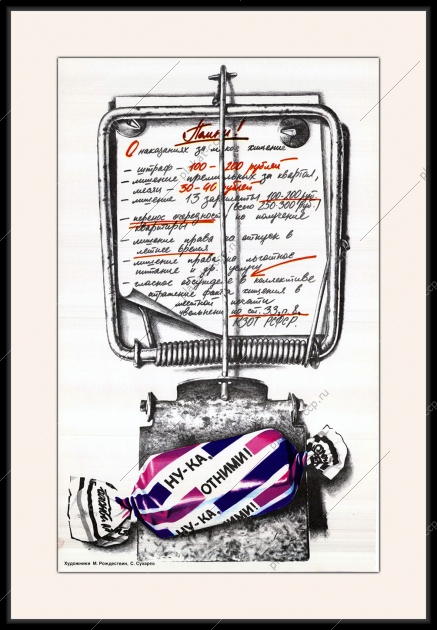 Помни!
О наказаниях за мелкое хищение
— штраф — 100 - 200 рублей
— лишение премиальных за квартал,
месяц — 30-40 рублей
— лишение 13 зарплаты 100-200 руб.
(всего 250-300 руб.)
— перенос очередности на получение
квартиры
— лишение права на отпуск в
летнее время
— лишение права на льготное
питание и др. услуги
— гласное обсуждение в коллективе
отражение факта хищения в
местной печати
увольнение по ст. 33, п. 8,
КЗОТ РСФСР.
НУ-КА,
ОТНИМИ!
НУ-КА,
ИМИ!
Художники М. Рождествин, С. Сухарев